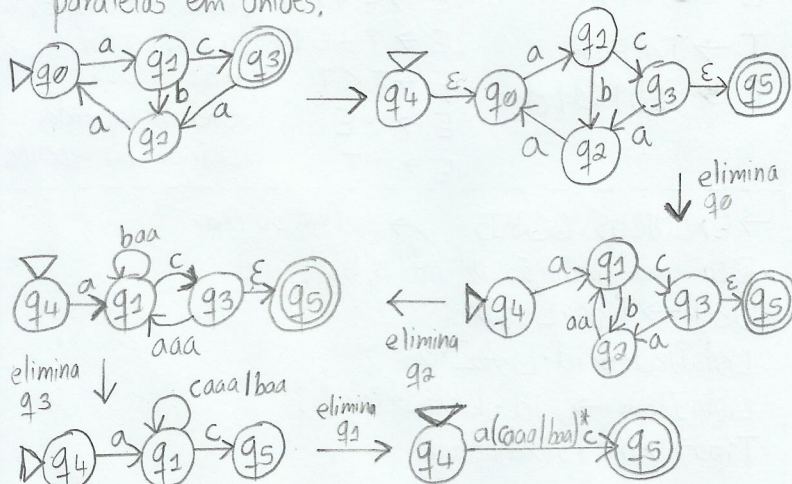 paralelas em uniões.
q0 a q1 c q3
b
a q2 a
q4 ε q0 a q1 c q3 ε q5
b
a q2 a
elimina
q0
q4 a q1 c q3 ε q5
aa b
q2 a
elimina
q2
baa
q4 a q1 c q3 ε q5
aaa
elimina
q3
caaa|baa
q4 a q1 c q5
elimina
q1
q4 a(caaa|baa)*c q5